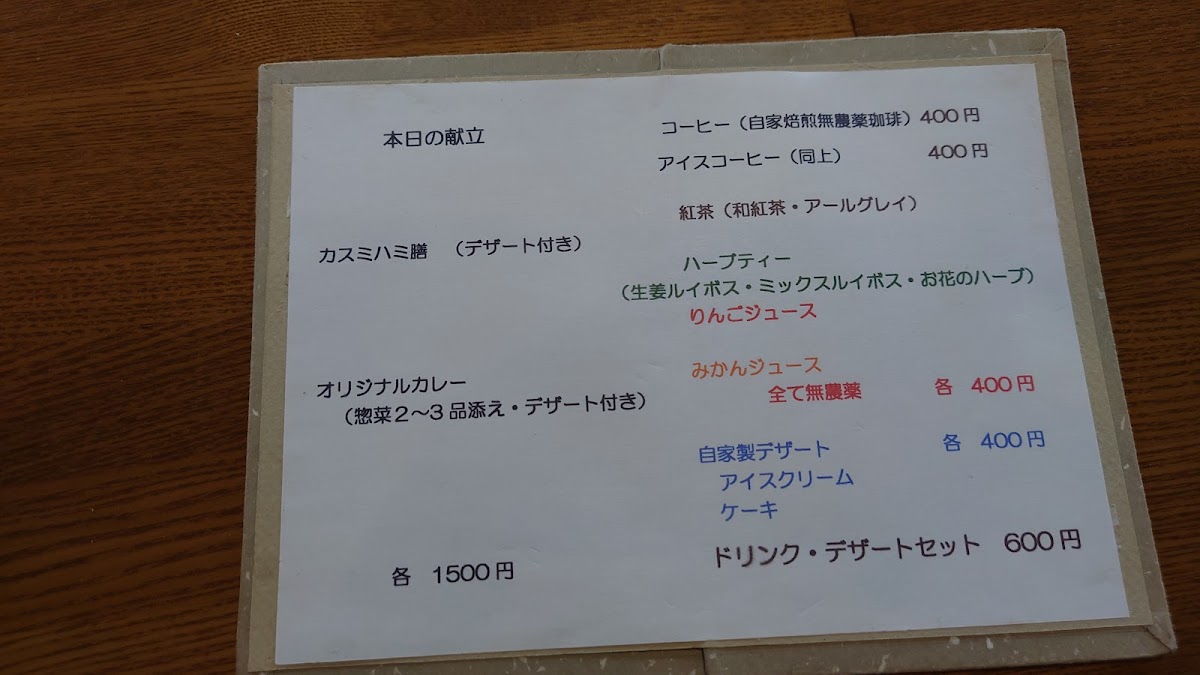 本日の献立
カスミハミ膳 （デザート付き）
オリジナルカレー
（惣菜２～３品添え・デザート付き）
各 1500円
コーヒー（自家焙煎無農薬珈琲）400円
アイスコーヒー（同上） 400円
紅茶（和紅茶・アールグレイ）
ハーブティー
（生姜ルイボス・ミックスルイボス・お花のハーブ）
りんごジュース
みかんジュース
全て無農薬 各 400円
自家製デザート 各 400円
アイスクリーム
ケーキ
ドリンク・デザートセット 600円